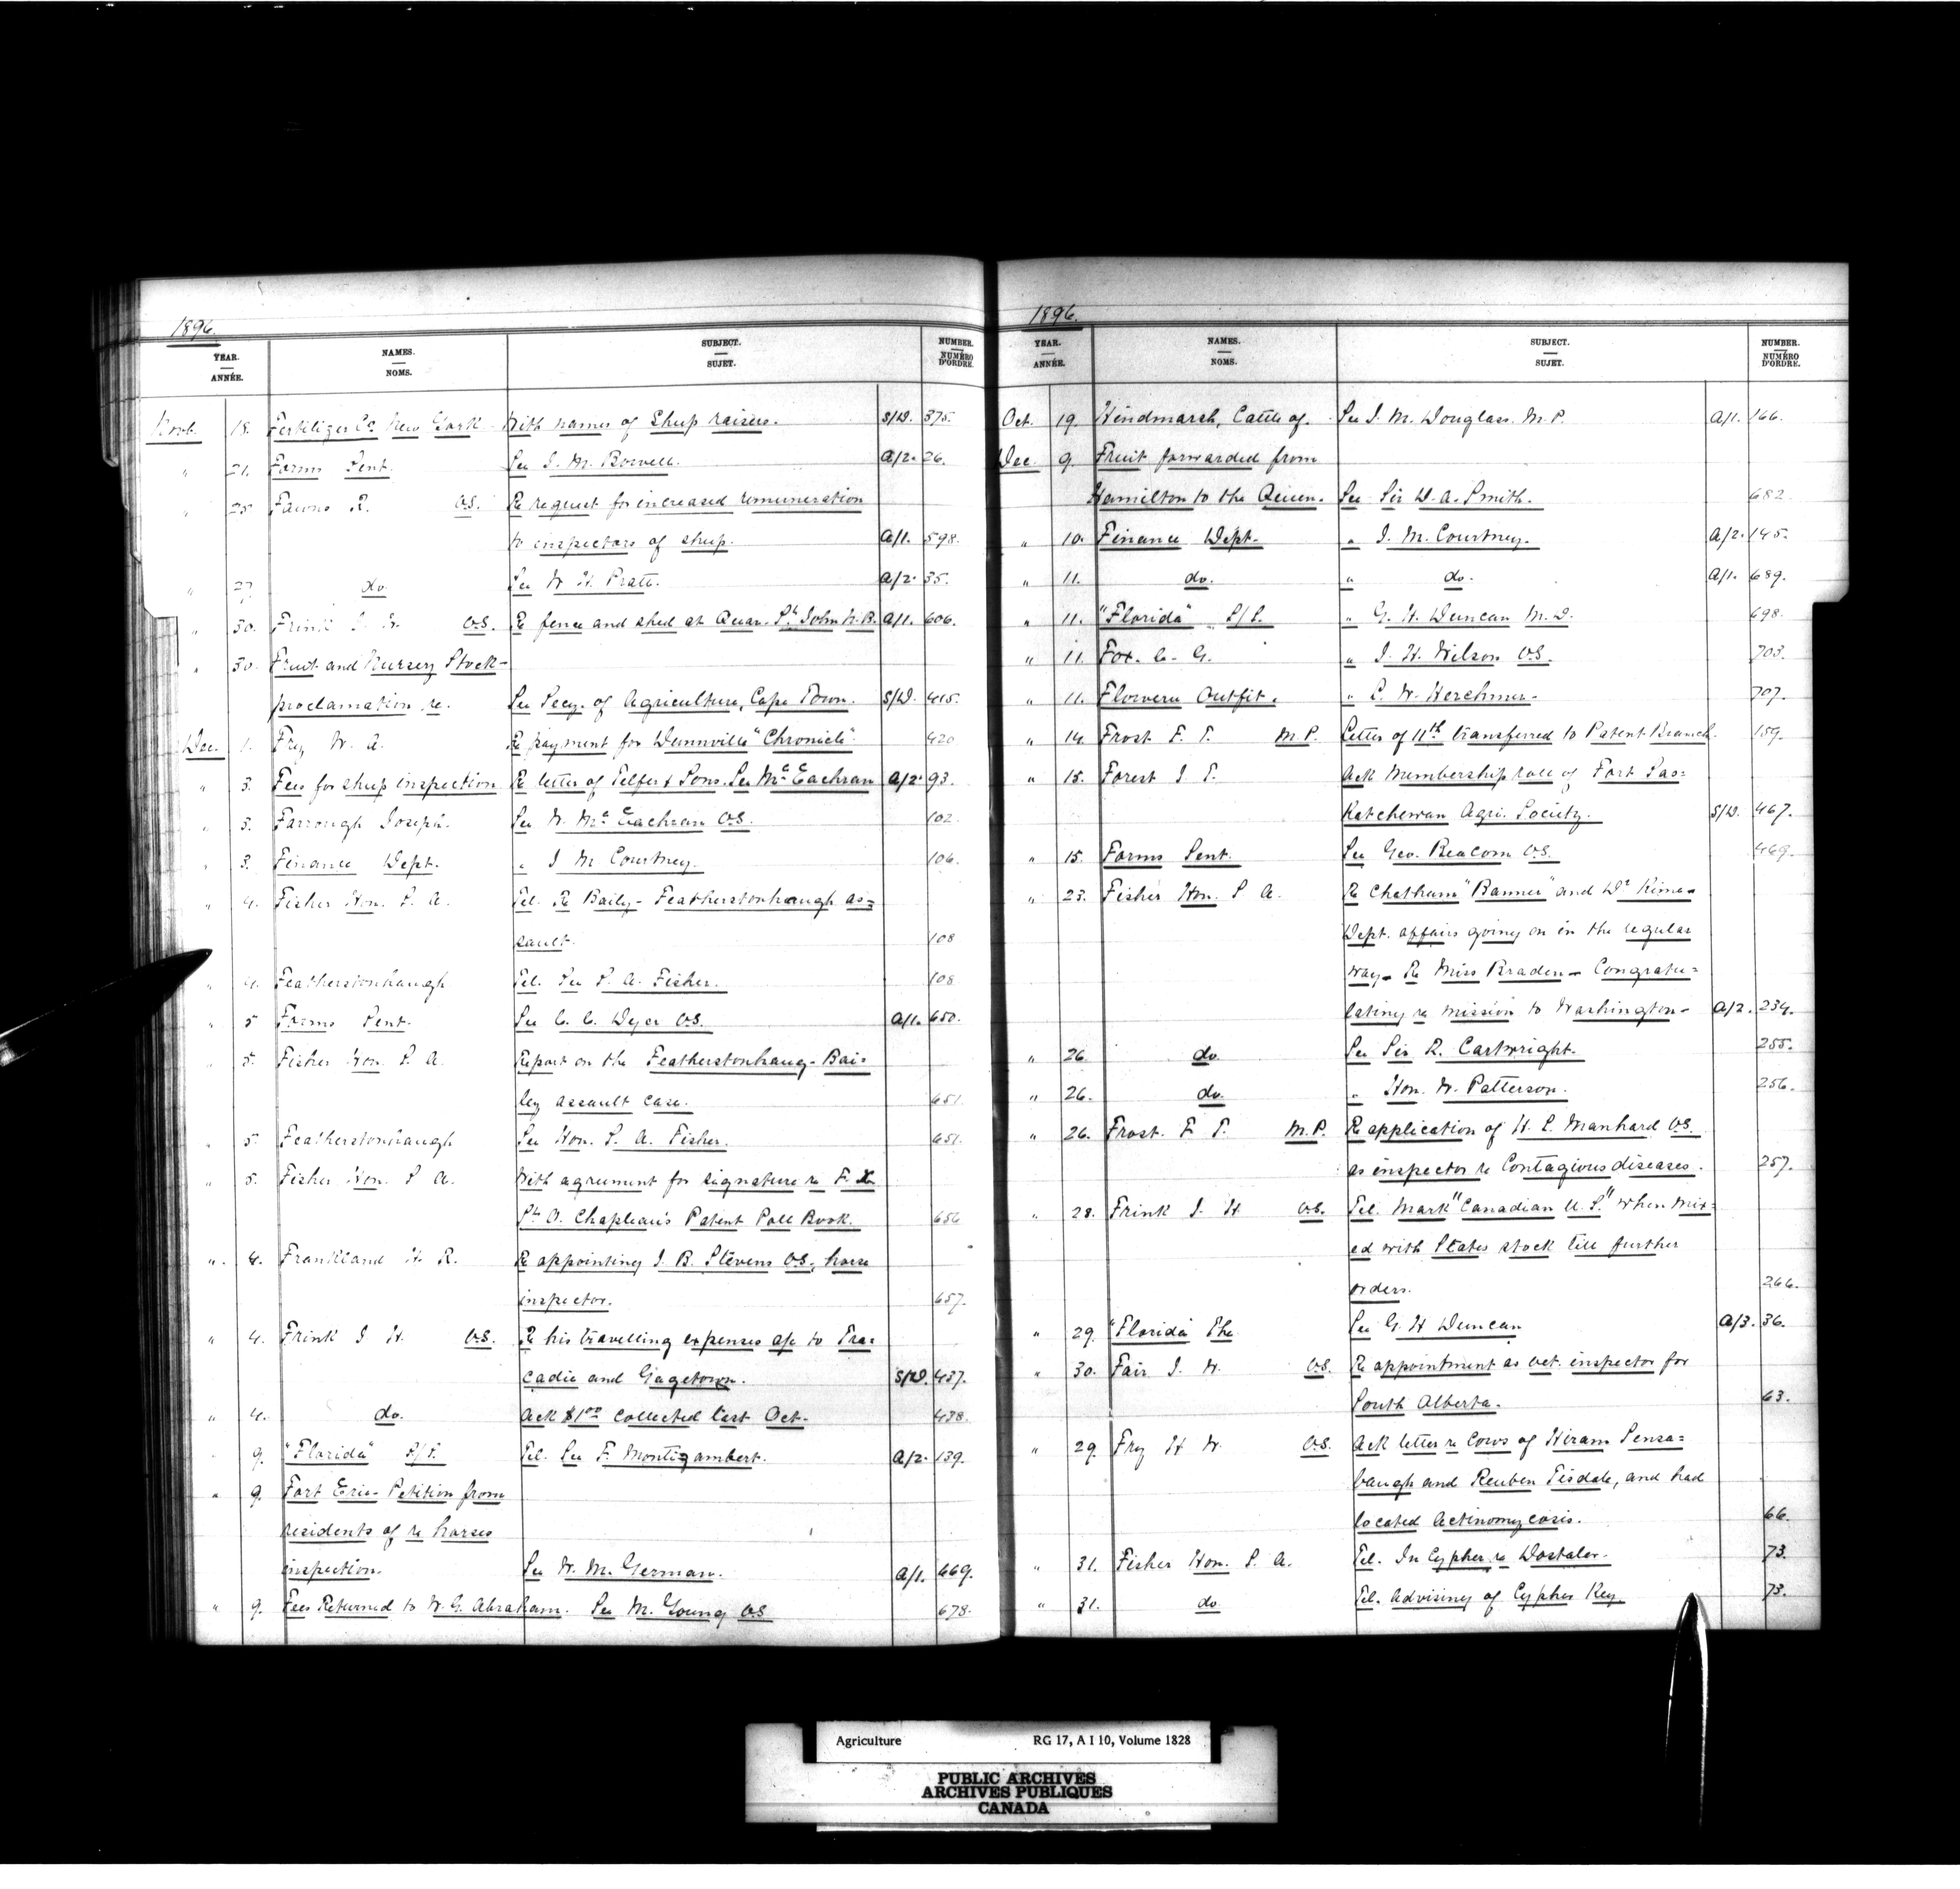 1896.
YEAR. ANNÉE. NAMES. NOMS. SUBJECT. SUJET. NUMBER. NUMÉRO D'ORDRE.
Novb. 18. Fertilizer Co. New York With names of Sheep raisers. S/W. 375.
" 21. Forms Sent. See J. M. Bowell. A/2. 26.
" 25 Fawns R. V.S. Re request for increased remuneration
to inspectors of sheep. A/1. 598.
" 27 do. See W. H. Pratt. A/2. 35.
" 30. Frink J. H. V.S. Re fence and shed at Quar. St. John N.B. A/1. 606.
" 30. Fruit and Nursery Stock-
proclamation re. See Secy. of Agriculture, Cape Town. S/W. 415.
Dec. 1. Fry W. A. Re payment for Dunnville "Chronicle". 420
" 3. Fees for sheep inspection Re letter of Telfer & Sons. See McEachran A/2. 93.
" 3. Farrough Joseph. See D. McEachran V.S. 102.
" 3. Finance Dept. " J M Courtney. 106.
" 4. Fisher Hon. S. A. Tel. Re Baily-Featherstonhaugh as=
sault. 108
" 4. Featherstonhaugh Tel. See S. A. Fisher. 108
" 5 Forms Sent. See C. C. Dyer V.S. A/1. 650.
" 5. Fisher Hon. S A. Report on the Featherstonhaug-Bai=
ley assault case. 651.
" 5. Featherstonhaugh See Hon. S. A. Fisher. 651.
" 5. Fisher Hon. S A. With agreement for signature re F. X
St. O. Chapleau's Patent Poll Book. 656
" 4. Frankland H. R. Re appointing J. B. Stevens V.S. horse
inspector. 657.
" 4. Frink J H. V.S. Re his travelling expenses a/c to Tra=
cadie and Gagetown. S/W. 437.
" 4. do. Ack $1.00 collected last Oct. 438.
" 9. "Florida" S/S. Tel. See F. Montizambert. A/2. 139.
" 9. Fort Erie-Petition from
residents of re horses
inspection. See W. M. German. A/1. 669.
" 9. Fees Returned to W. G. Abraham. See M. Young V.S 678.
1896.
YEAR. ANNÉE. NAMES. NOMS. SUBJECT. SUJET. NUMBER. NUMÉRO D'ORDRE.
Oct. 19. Hindmarsh, Cattle of. See J. M. Douglas. M.P. A/1. 166.
Dec 9. Fruit forwarded from
Hamilton to the Queen. See Sir D. A. Smith. 682.
" 10. Finance Dept. " J. M. Courtney. A/2. 145.
" 11. do. " do. A/1. 689.
" 11. "Florida" S/S. " G. H. Duncan M.D. 698.
" 11. Fox. C. G. " J. H. Wilson V.S. 703.
" 11. Flowers Outfit. " L. W. Herchmer. 707.
" 14. Frost F. T. M.P. Letter of 11th transferred to Patent Branch. 159.
" 15. Forest J T. Ack Membership roll of Fort Sas=
katchewan Agri. Society. S/W. 467.
" 15. Forms Sent. See Geo. Beacom V.S. 469.
" 23. Fisher Hon. S A. Re Chatham "Banner" and Dr. King-
Dept. affairs going on in the regular
way- Re Miss Braden- Congratu=
lating re mission to Washington- A/2. 234.
" 26. do. See Sir R. Cartwright. 255.
" 26. do. " Hon. W. Patterson. 256.
" 26. Frost. F T. M.P. Re application of H. S. Manhard V.S.
as inspector re Contagious diseases. 257.
" 28. Frink J. H V.S. Tel. Mark "Canadian U.S." when mix=
ed with States stock till further
orders. 266.
" 29. "Florida" The See G. H Duncan A/3. 36.
" 30. Fair J. W. V.S. Re appointment as vet. inspector for
South Alberta. 63.
" 29. Fry H W. V.S. Ack letter re cows of Hiram Sensa=
baugh and Reuben Tisdale, and had
located Actinomycosis. 66.
" 31. Fisher Hon. S. A. Tel. In Cypher re Dostaler. 73.
" 31. do Tel. Advising of Cypher Key. 73.
Agriculture RG 17, A I 10, Volume 1828
PUBLIC ARCHIVES
ARCHIVES PUBLIQUES
CANADA